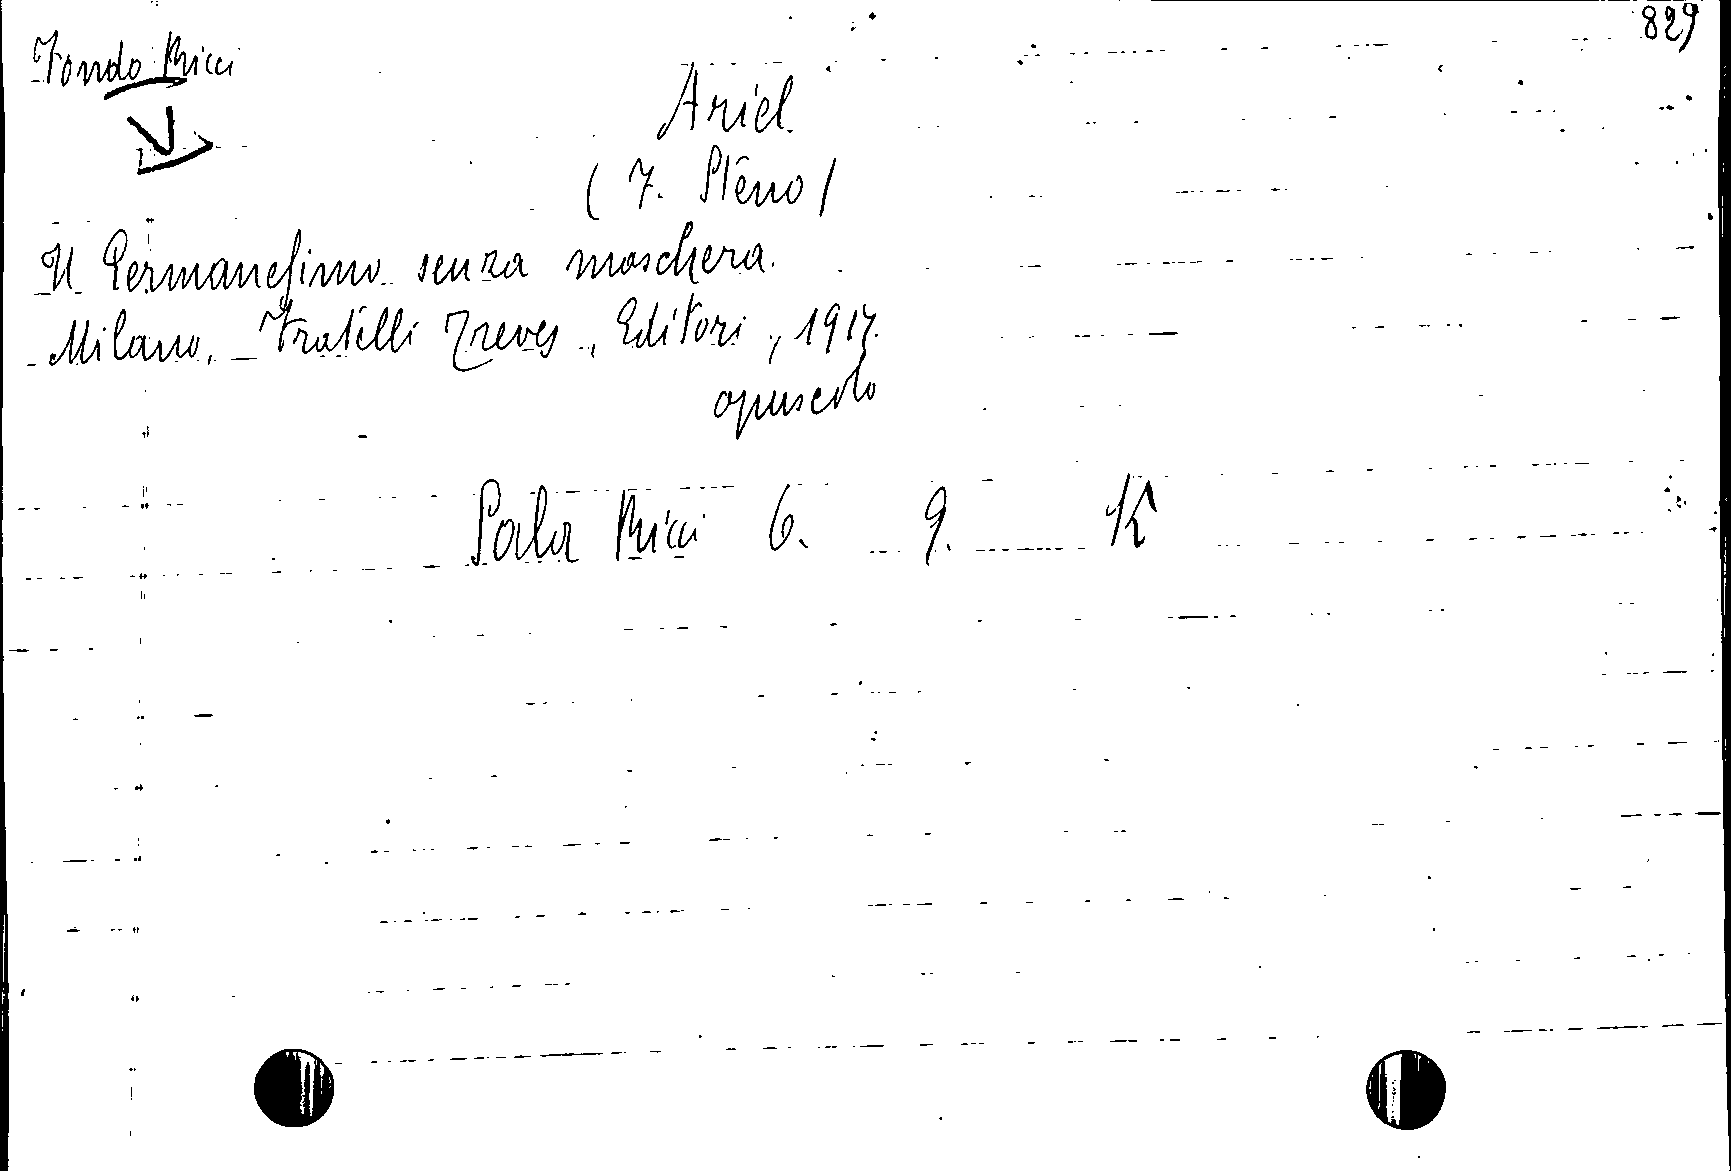 829
Fondo Ricci
Ariel
(F. Steno)
Il Germanesimo senza maschera.
Milano, Fratelli Treves, Editori, 1917.
opuscolo
Sala Ricci 6. 9. K